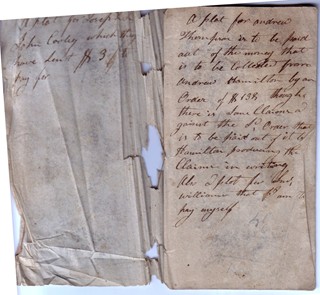 A plot for Joseph
John Corley which they
have sent $ 3 of 8
pay for
A plot for andrew
Thompson is to be paid
out of the money that
is to be Collected from
Andrew Hamilton by an
Order of $138 though
there is Some Claims a
gainst the Sd Order that
is to be paid out of it by
Hamilton producing the
Claims in writing
Also a plot for
williams that I am to
pay myself